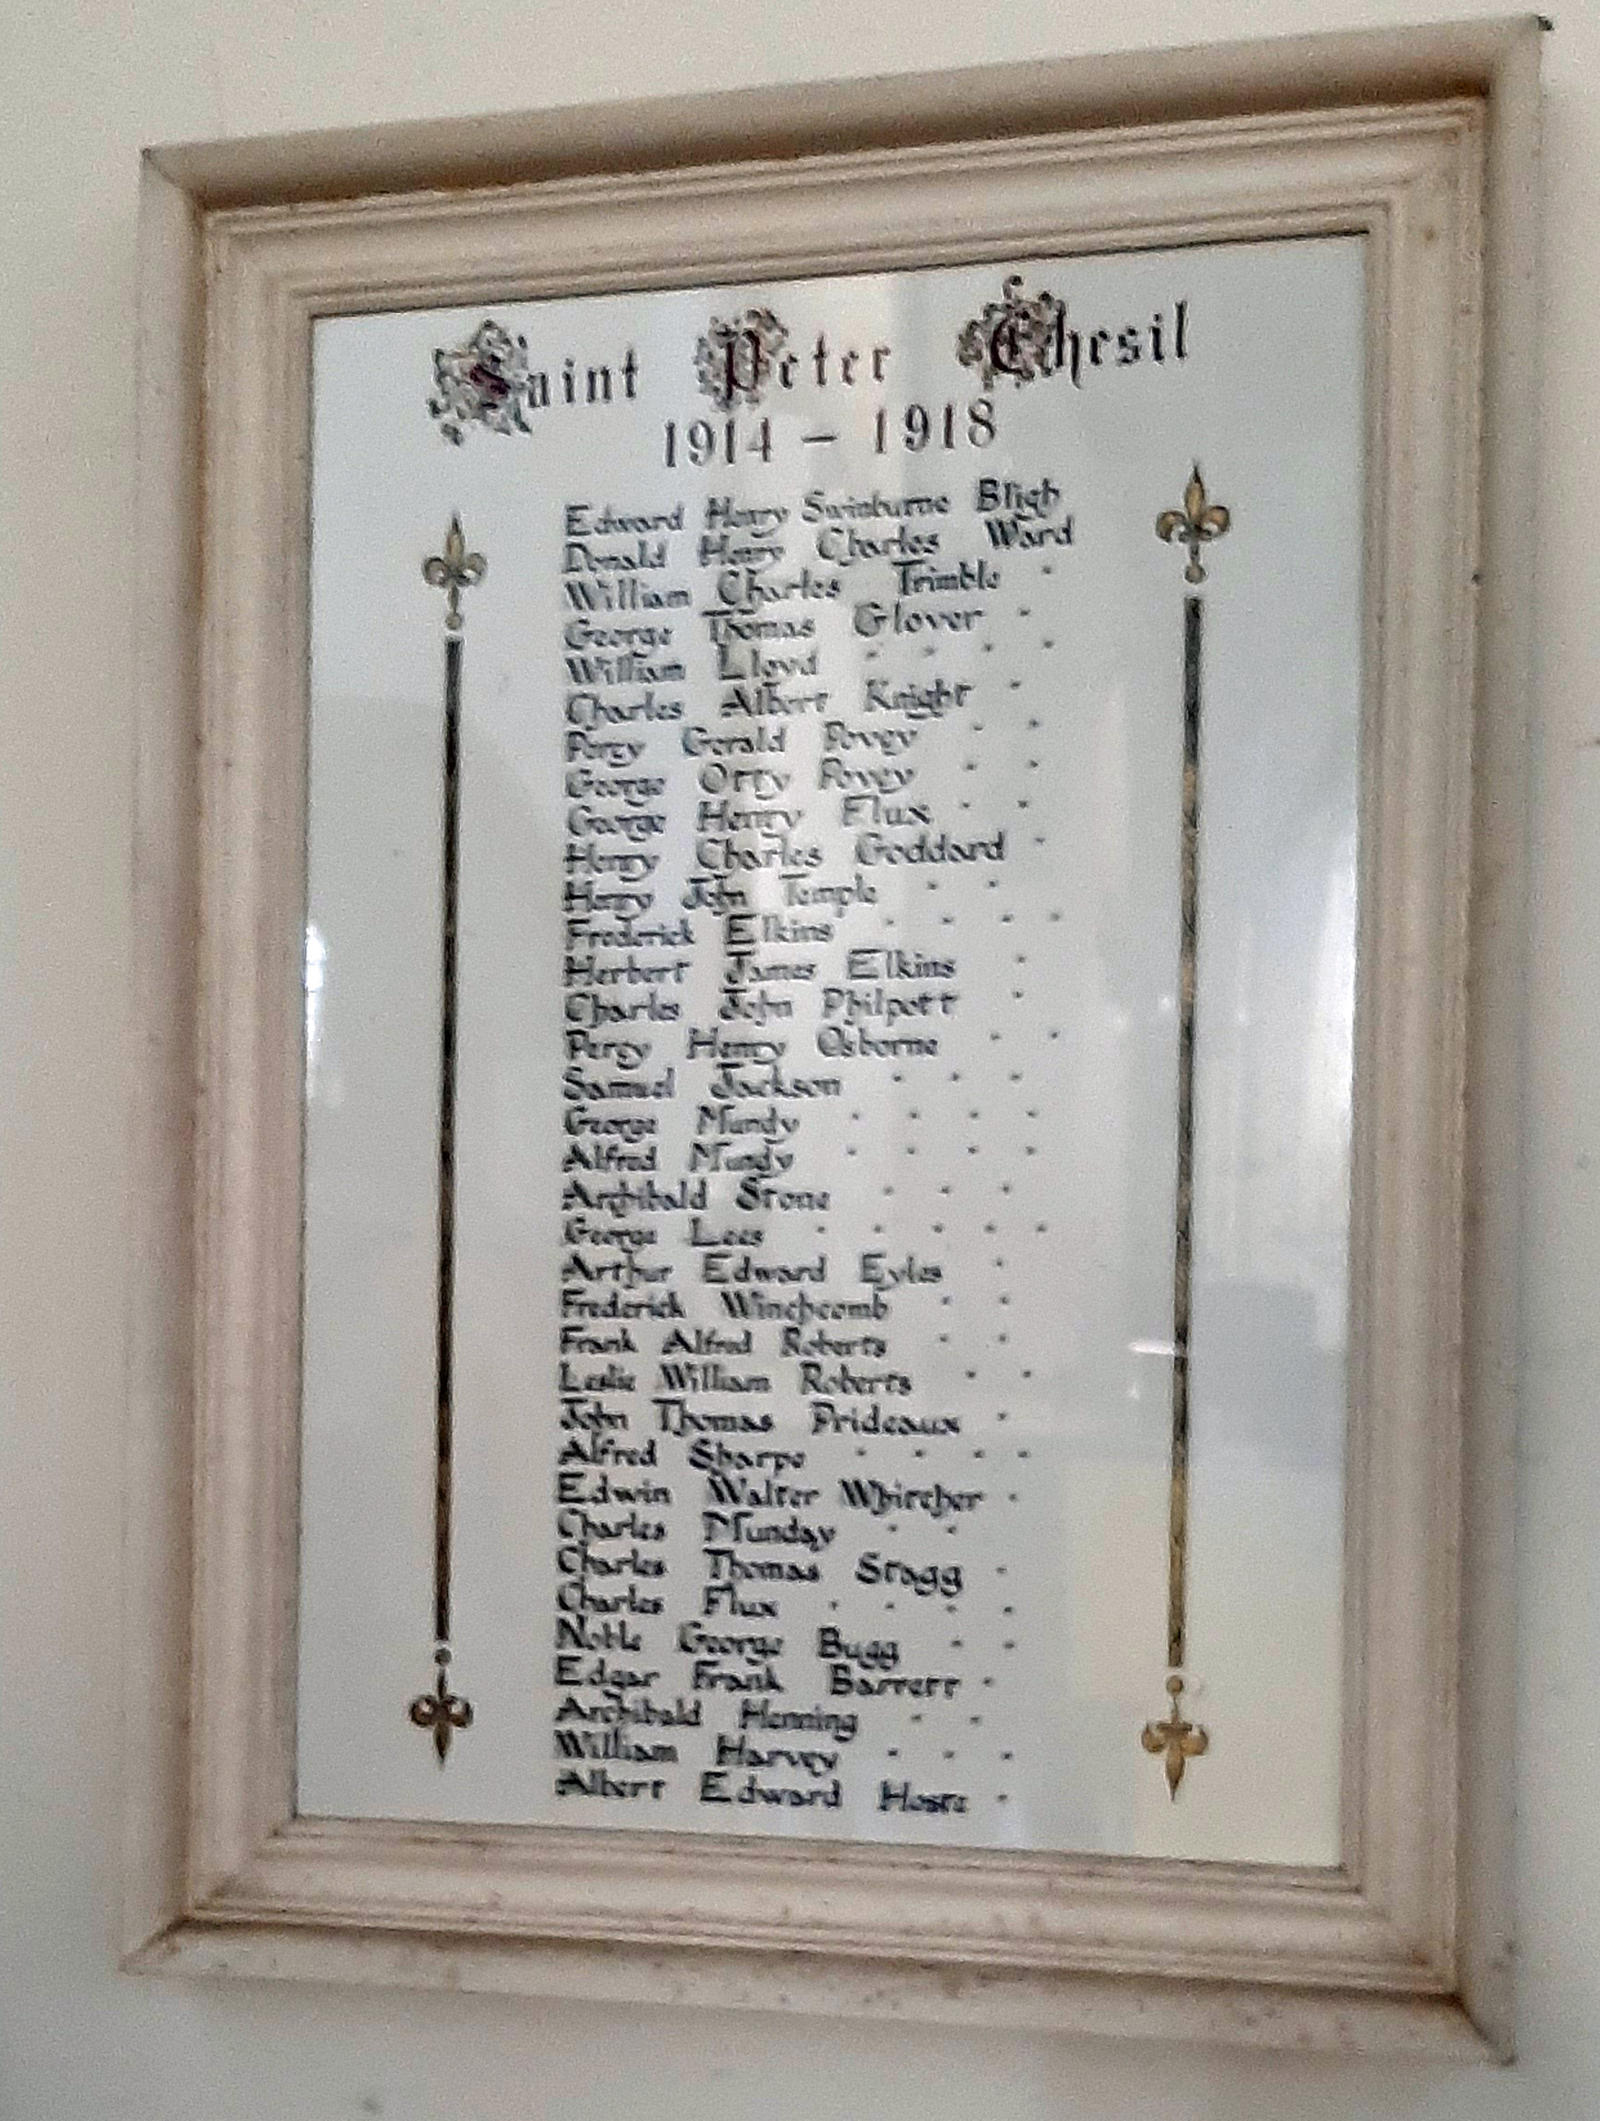 Saint Peter Chesil
1914 – 1918
Edward Henry Swinburne Bligh
Donald Henry Charles Ward
William Charles Trimble
George Thomas Glover
William Lloyd
Charles Albert Knight
Percy Gerald Povey
George Orry Povey
George Henry Flux
Henry Charles Goddard
Henry John Temple
Frederick Elkins
Herbert James Elkins
Charles John Philpott
Percy Henry Osborne
Samuel Jackson
George Mundy
Alfred Mundy
Archibald Stone
George Lees
Arthur Edward Eyles
Frederick Winchcomb
Frank Alfred Roberts
Leslie William Roberts
John Thomas Prideaux
Alfred Sharpe
Edwin Walter Whitcher
Charles Munday
Charles Thomas Stagg
Charles Flux
Noble George Bugg
Edgar Frank Barrett
Archibald Henning
William Harvey
Albert Edward Hoare